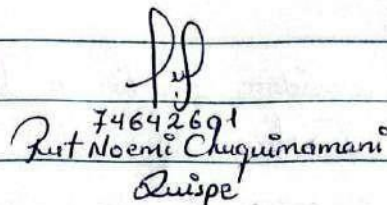 74642691
Rut Noemi Chuquimamani
Quispe